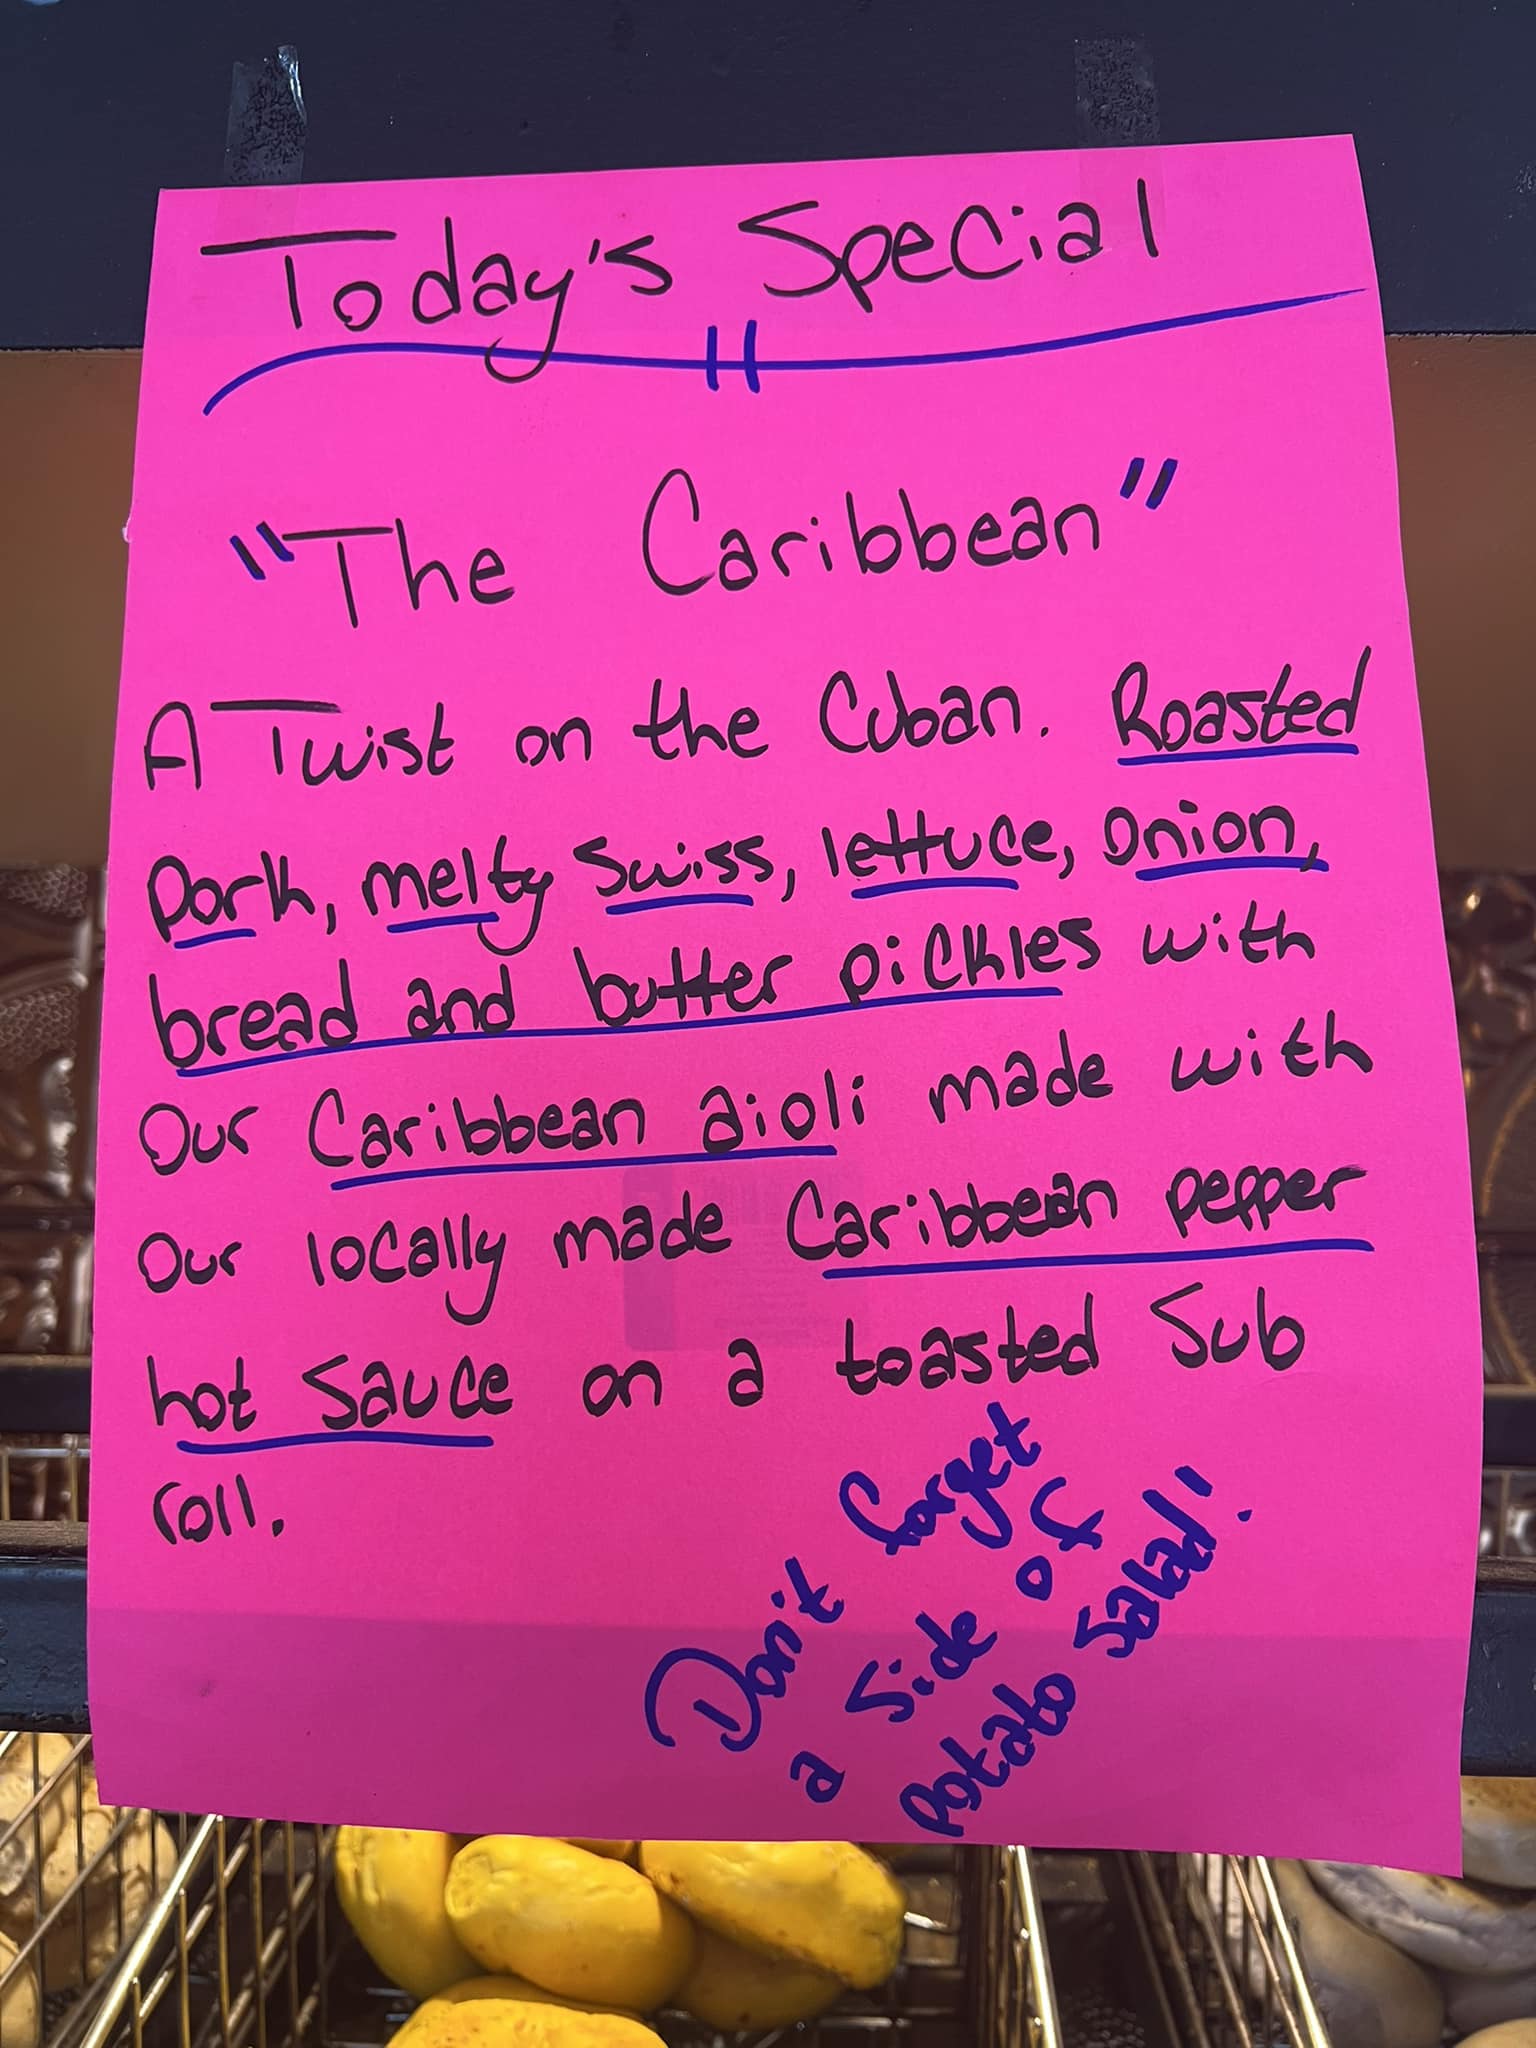 Today's Special
"The Caribbean"
A Twist on the Cuban. Roasted
Pork, melty Swiss, lettuce, Onion,
bread and butter pickles with
Our Caribbean aioli made with
Our locally made Caribbean pepper
hot Sauce on a toasted Sub
roll.
Don't forget
a Side of
Potato Salad!